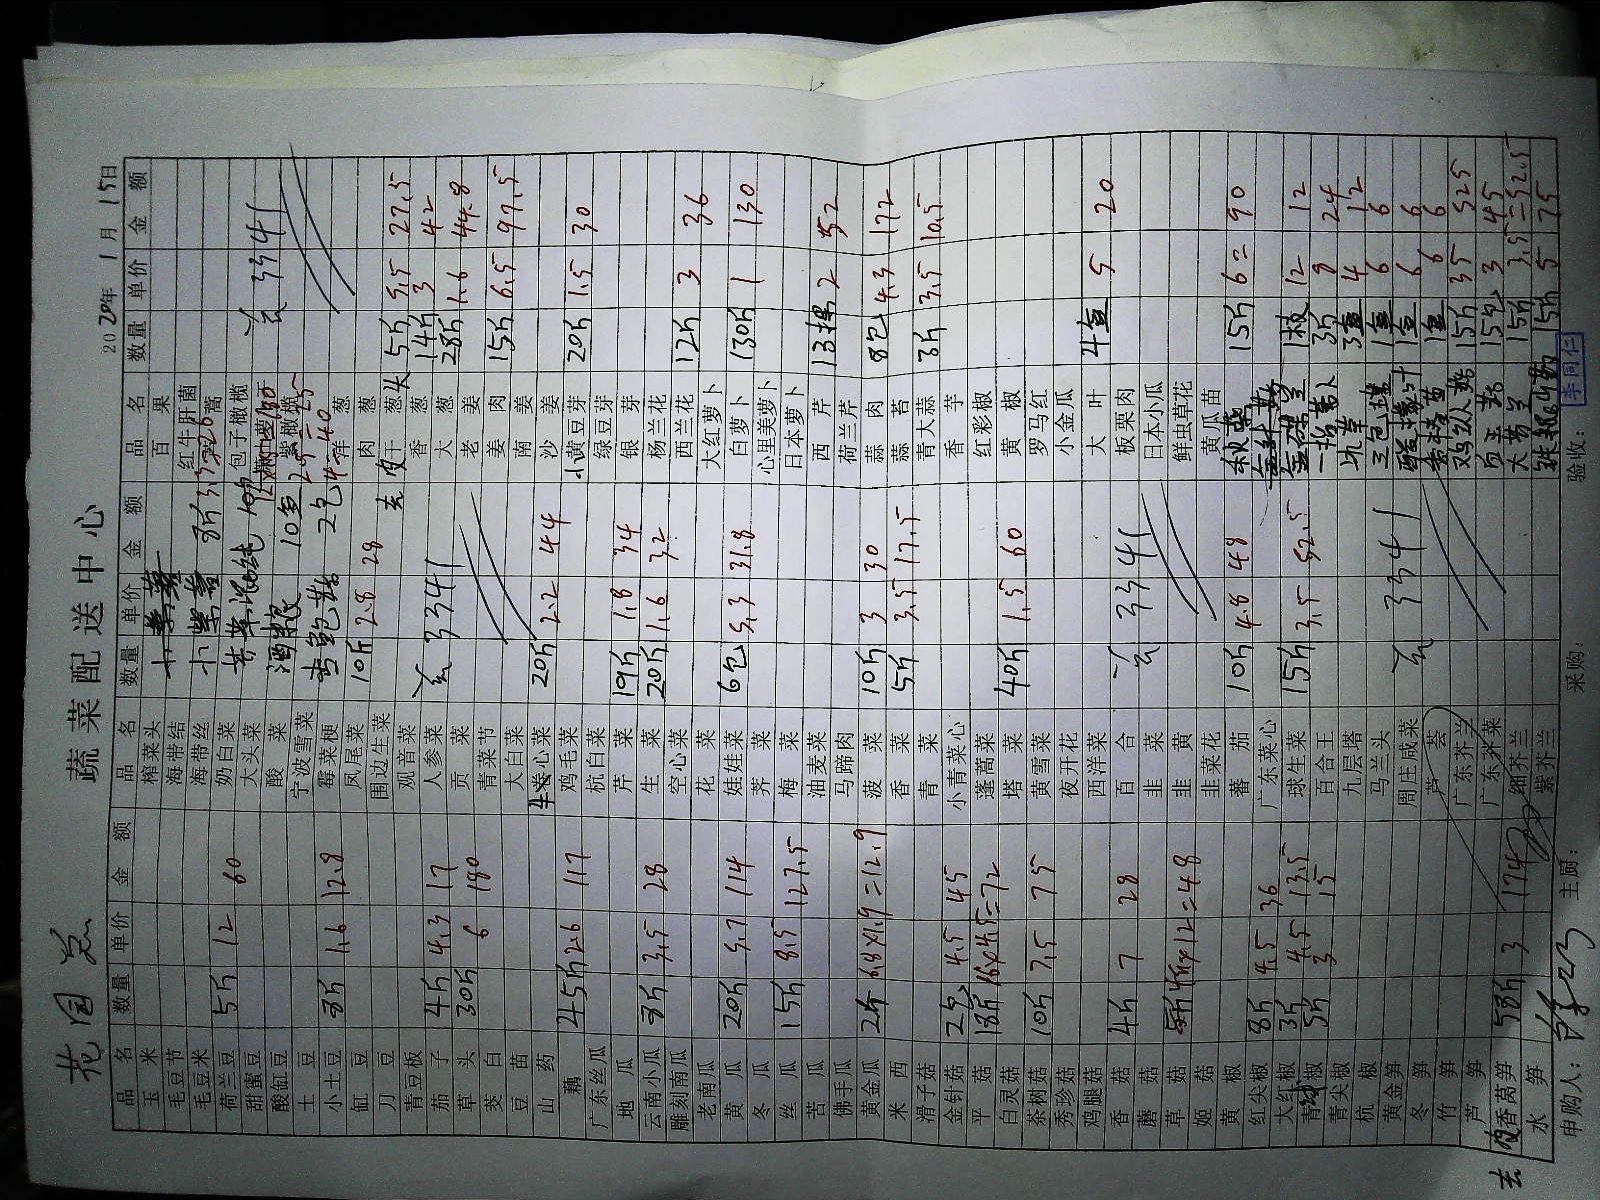 花园 总
蔬菜配送中心
2020年 1月 15日
品名 数量 单价 金额 品名 数量 单价 金额 品名 数量 单价 金额
玉米
毛豆节
毛豆米
荷兰豆 5斤 12 60
甜蜜豆
酸缸豆
土豆
小土豆 8斤 1.6 12.8
缸豆
刀豆
青豆板
茄子 4斤 4.3 17
草头 30斤 6 180
茭白
豆苗
山药
藕 45斤 2.6 117
广东丝瓜
地瓜
云南小瓜 8斤 3.5 28
雕刻南瓜
老南瓜
黄瓜 20斤 5.7 114
冬瓜
丝瓜 15斤 8.5 127.5
苦瓜
佛手瓜
黄金瓜 2斤 6.8×1.9=12.9
米西
滑子菇
金针菇 2包 4.5 45
平菇 18斤 16×4.5=72
白灵菇
茶树菇 10斤 7.5 75
秀珍菇
鸡腿菇
香菇 4斤 7 28
蘑菇
草菇 4斤×12=48
姬菇
黄椒
红尖椒 8斤 4.5 36
大红椒 3斤 4.5 13.5
青椒 5斤 3 15
青尖椒
杭椒
黄金笋
冬笋
竹笋
芦笋
去皮香莴笋 58斤 3 174
水笋
榨菜头
海带结
海带丝
奶白菜
大头菜
酸菜
宁波雪菜
霉菜梗
凤尾菜 10斤 2.8 28
围边生菜
观音菜
人参菜
贡菜
青菜节
大白菜
卷心菜 20斤 2.2 44
鸡毛菜
杭白菜
芹菜 19斤 1.8 34
生菜 20斤 1.6 32
空心菜
花菜
娃娃菜 6包 5.3 31.8
荠菜
梅菜
油麦菜
马蹄肉
菠菜 10斤 3 30
香菜 5斤 3.5 17.5
青菜
小青菜心
蓬蒿菜
塔菜 40斤 1.5 60
黄雪菜
夜开花
西洋菜
百合
韭菜
韭黄
韭菜花
蕃茄 10斤 4.8 48
广东菜心
球生菜 15斤 3.5 52.5
百合王
九层塔
马兰头
周庄咸菜
芦荟
广东芥兰
广东芥菜
细芥兰
紫芥兰
3341
3341
3341
3341
百果
红牛肝菌
包子橄榄
紫橄榄
洋葱
肉葱
干葱头 去皮 5斤 5.5 27.5
香葱 14斤 3 42
大葱 28斤 1.6 44.8
老姜
姜肉 15斤 6.5 97.5
南姜
沙姜
小黄豆芽 20斤 1.5 30
绿豆芽
银芽
杨兰花
西兰花 12斤 3 36
大红萝卜
白萝卜 130斤 1 130
心里美萝卜
日本萝卜
西芹 13 2 52
荷兰芹
蒜肉 8包 4.3 172
蒜苔
青大蒜 3斤 3.5 10.5
香芋
红彩椒
黄椒
罗马红
小金瓜
大叶 4盒 5 20
板栗肉
日本小瓜
鲜虫草花
黄瓜苗
秋葵 15斤 6= 90
1枝 12 12
3斤 8 24
冰草 3盒 4 12
1盒 6 6
1盒 6 6
1盒 6 6
15斤 35 525
15包 3 45
15斤 3.5=52.5
15斤 5 75
申购人：
主厨：
采购：
验收：
李同仁